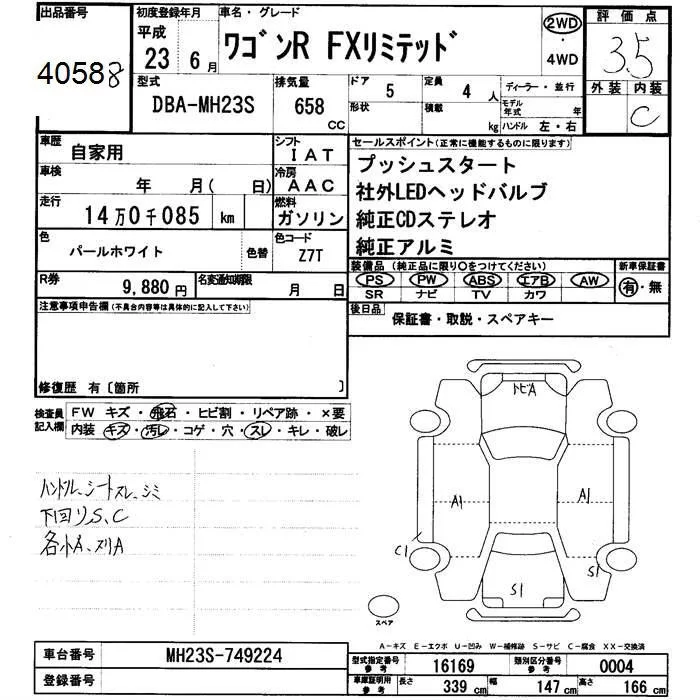 出品番号
40588
初度登録年月
平成
23 6月
車名・グレード
ワゴンR FXリミテッド
2WD
・
4WD
評価点
3.5
外装 内装
C
型式
DBA-MH23S
排気量
658
CC
ドア 5
形状
定員 4 人
積載 kg
ディーラー・並行
モデル年式 年
ハンドル 左・右
車歴
自家用
シフト
IAT
車検
年 月( 日)
冷房
AAC
走行
14万0千085 km
燃料
ガソリン
色
パールホワイト
色替
色コード
Z7T
R券
9,880円
名変通知期限
月 日
セールスポイント(正常に機能するものに限ります)
プッシュスタート
社外LEDヘッドバルブ
純正CDステレオ
純正アルミ
装備品(純正品に限り○をつけてください)
PS PW ABS エアB AW
SR ナビ TV カワ
新車保証書
有・無
後日品
保証書・取説・スペアキー
注意事項申告欄(不具合内容等は具体的に記入して下さい)
修復歴 有〔箇所 〕
検査員記入欄
FW キズ・飛石・ヒビ割・リペア跡・×要
内装 キズ・汚レ・コゲ・穴・スレ・キレ・破レ
ハンドル、シートスレ、シミ
下回りS、C
各小A、ヌリA
トビA
A1
A1
C1
S1
S1
スペア
A-キズ E-エクボ U-凹み W-補修跡 S-サビ C-腐食 XX-交換済
車台番号
MH23S-749224
登録番号
型式指定番号
参考
16169
類別区分番号
参考
0004
車庫証明用
参考
長さ 339cm 幅 147cm 高さ 166cm